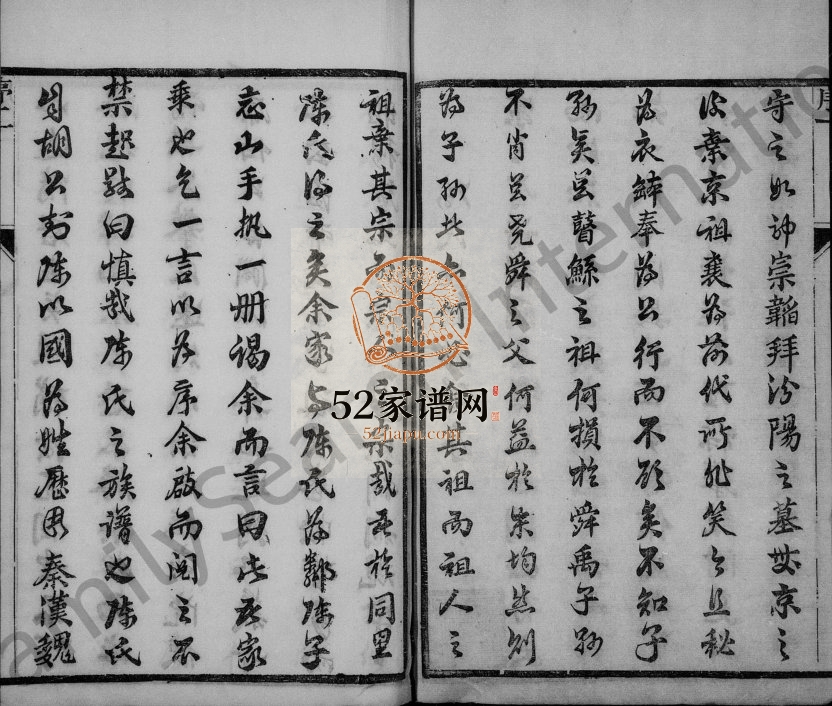 守之如神宗韜拜汾陽之墓蔡京之
京祖襄為前代所非笑今且秘
為衣鉢奉為公行而不顧矣不知子
孫瞽鯀之祖何損於舜禹子孫
不肖堯舜之父何益於朱均然則
為子孫何必其祖而祖人之
祖棄其宗而宗人之宗哉吾於同里
陳氏得之矣余家与陳氏為鄰陳子
志山手执一册謁余而言曰此吾家
乘也乞一言以為序余啟而閱之不
禁起敬曰慎哉陳氏之族譜也陳氏
自胡公封陳以國為姓歷周秦漢魏
序二
52家谱网
52jiapu.com
FamilySearch International